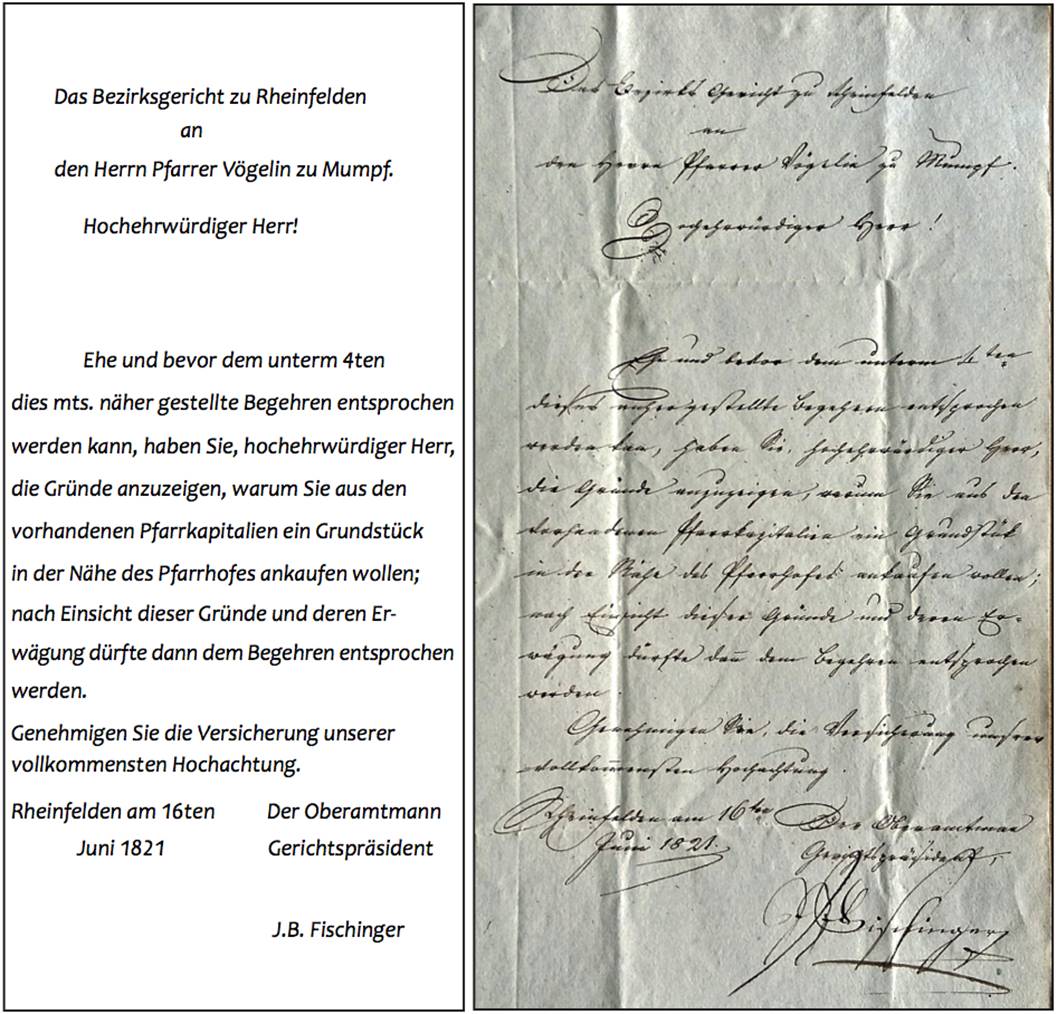 Das Bezirksgericht zu Rheinfelden
an
den Herrn Pfarrer Vögelin zu Mumpf.
Hochehrwürdiger Herr!
Ehe und bevor dem unterm 4ten
dies mts. näher gestellte Begehren entsprochen
werden kann, haben Sie, hochehrwürdiger Herr,
die Gründe anzuzeigen, warum Sie aus den
vorhandenen Pfarrkapitalien ein Grundstück
in der Nähe des Pfarrhofes ankaufen wollen;
nach Einsicht dieser Gründe und deren Er-
wägung dürfte dann dem Begehren entsprochen
werden.
Genehmigen Sie die Versicherung unserer
vollkommensten Hochachtung.
Rheinfelden am 16ten
Juni 1821
Der Oberamtmann
Gerichtspräsident
J.B. Fischinger
Das Bezirks Gericht zu Rheinfelden
an
den Herrn Pfarrer Vögelin zu Mumpf.
Hochehrwürdiger Herr!
Ehe und bevor dem unterm 4ten
dieses anher gestellte Begehren entsprochen
werden kan, haben Sie, hochehrwürdiger Herr,
die Gründe anzuzeigen, warum Sie aus den
vorhandenen Pfarrkapitalien ein Grundstük
in der Nähe des Pfarrhofes ankaufen wollen;
nach Einsicht dieser Gründe und deren Er-
wägung dürfte dan̅ dem Begehren entsprochen
werden.
Genehmigen Sie, die Versicherung unserer
vollkom̅ensten Hochachtung.
Rheinfelden am 16ten
Juni 1821.
Der Oberamtman
Gerichtspräsident,
JB Fischinger